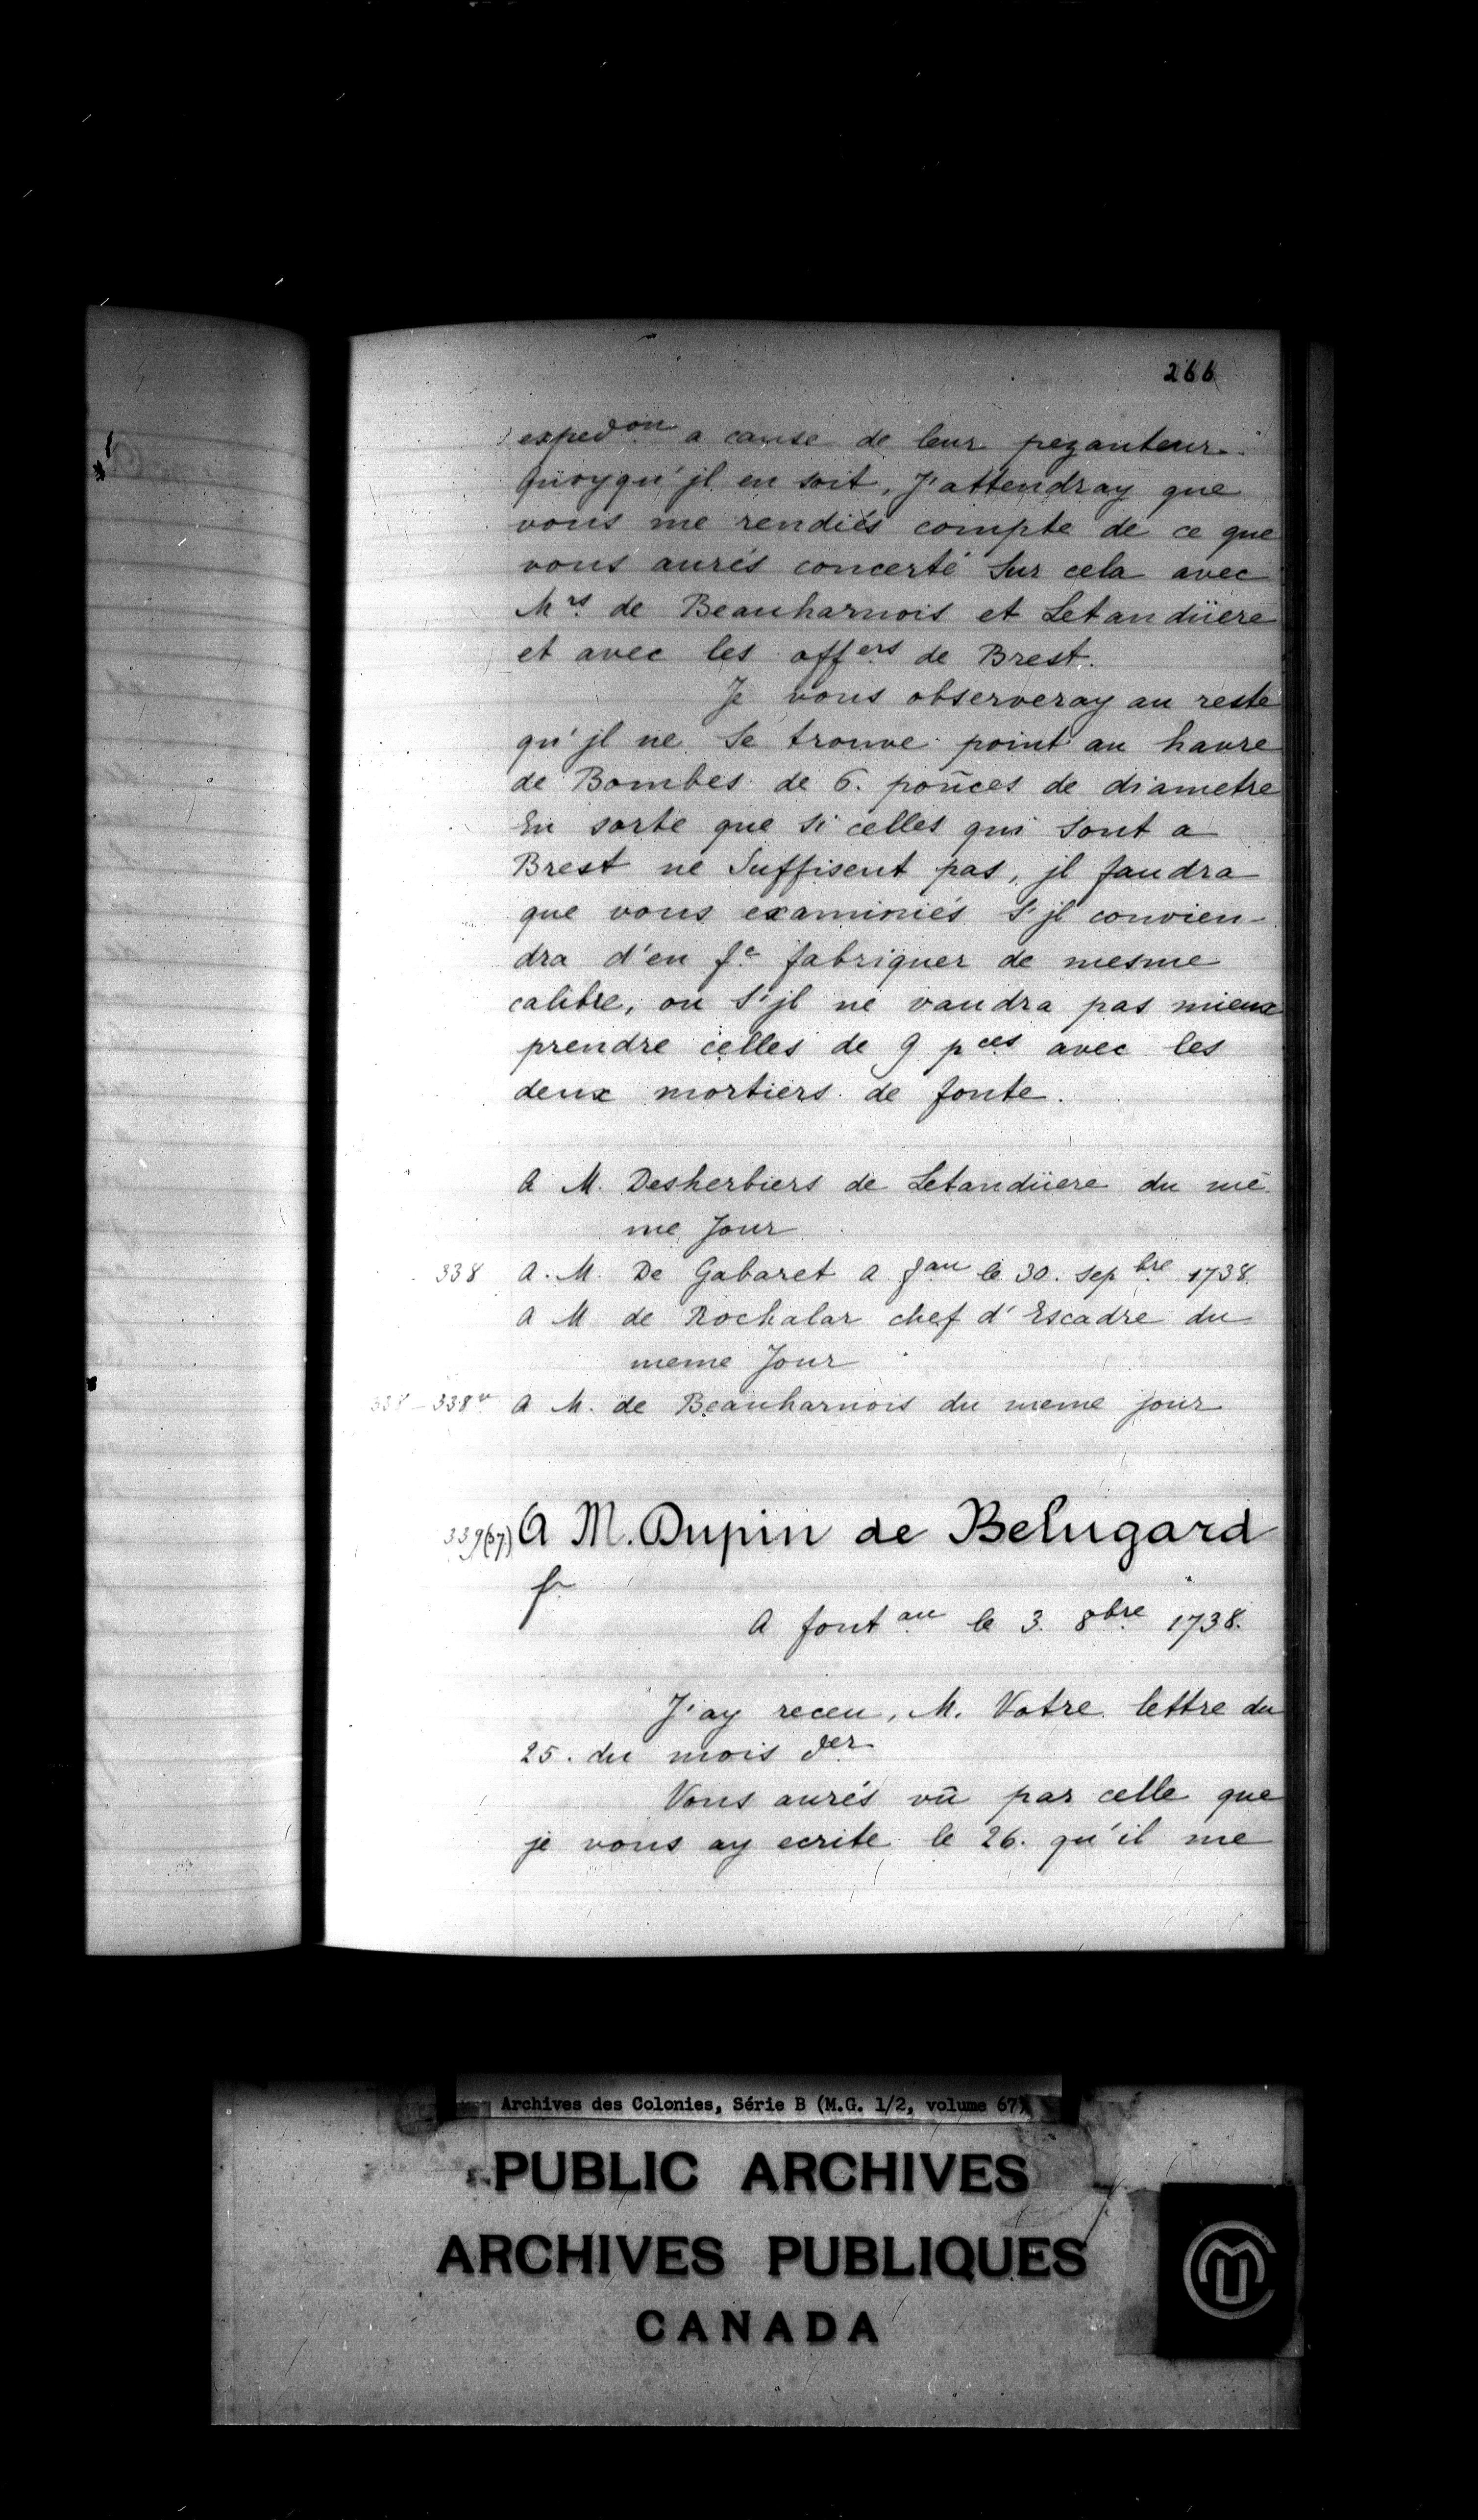 266
expedon a cause de leur pezanteur.
Quoyqu'jl en soit, J'attendray que
vous me rendiés compte de ce que
vous aurés concerté Sur cela avec
Mrs de Beauharnois et Letandüere
et avec les offers de Brest.
Je vous observeray au reste
qu'jl ne Se trouve point au havre
de Bombes de 6. poûces de diametre
En sorte que si celles qui Sont a
Brest ne Suffisent pas, jl faudra
que vous examiniés S'jl convien-
dra d'en fe fabriquer de mesme
calibre, ou S'jl ne vaudra pas mieux
prendre celles de 9 pces avec les
deux mortiers de fonte.
A M. Desherbiers de Letandüere du mê
me Jour
338 A. M. De Gabaret a fau le 30. sepbre 1738.
A M de Rochalar chef d'Escadre du
meme Jour
338 - 338v A M. de Beauharnois du meme jour
339(67) A M. Dupin de Belugard
A fontau le 3. 8bre 1738.
J'ay receu, M. Votre lettre du
25. du mois der
Vous aurés vû par celle que
je vous ay ecrite le 26. qu'il me
Archives des Colonies, Série B (M.G. 1/2, volume 67)
PUBLIC ARCHIVES
ARCHIVES PUBLIQUES
CANADA